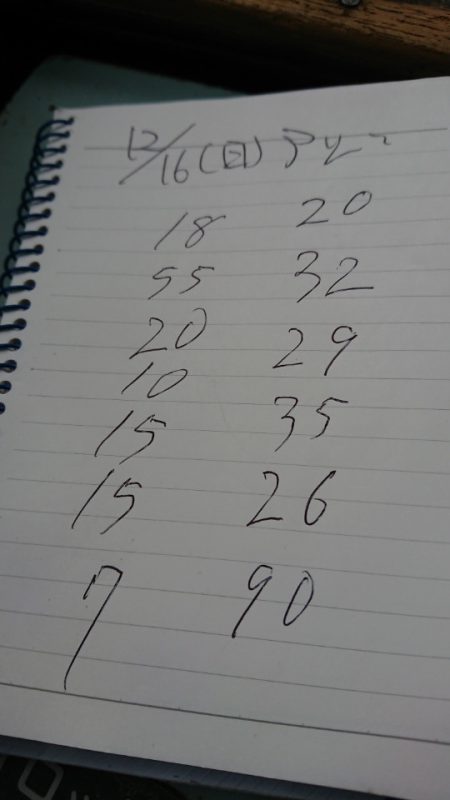 12/16(日)
18 20
55 32
20 29
10
15 35
15 26
7 90